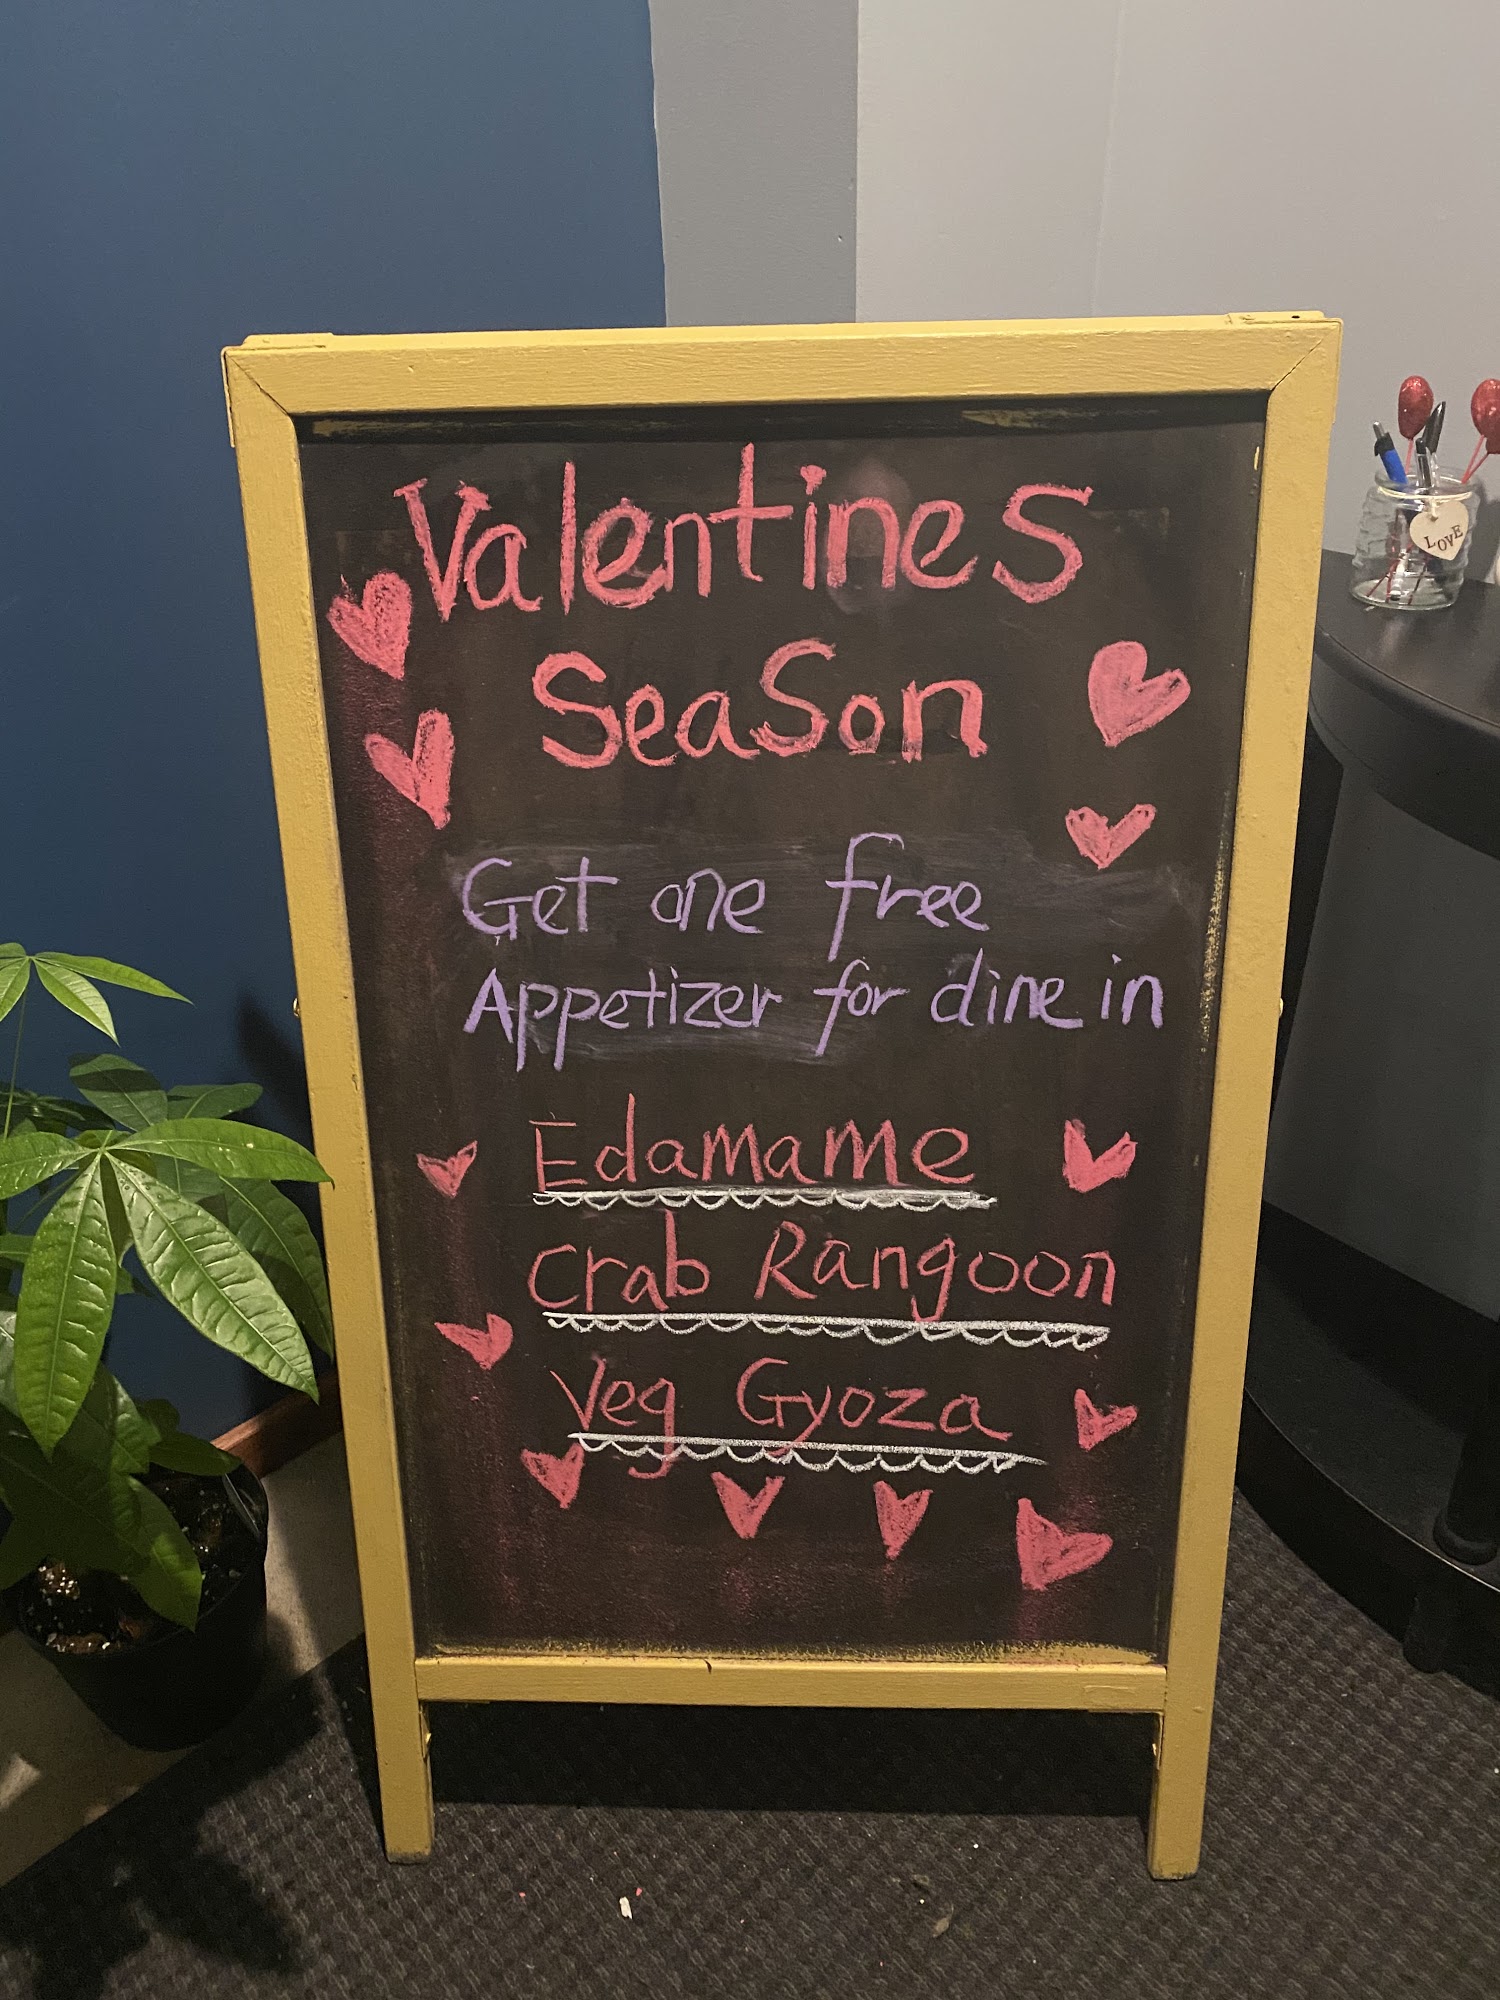 Valentines
Season
Get one free
Appetizer for dine in
Edamame
Crab Rangoon
Veg Gyoza
LOVE